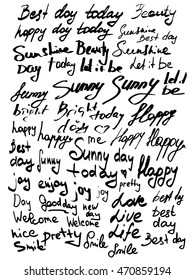 Best day today Beauty
happy day today Sunshine Best day
Sunshine Beauty Sunshine
Day today let it be Let it be
Sunny Sunny let it be
bright Bright Happy
happy today
happy happy me Happy
Best day funny Sunny day
today Happy
joy enjoy joy pretty
Day Good day new day Love best day
Welcome Welcome Live best day
nice pretty Smile Life
Smile Smile Best day
shutterstock
IMAGE ID: 470859194
www.shutterstock.com